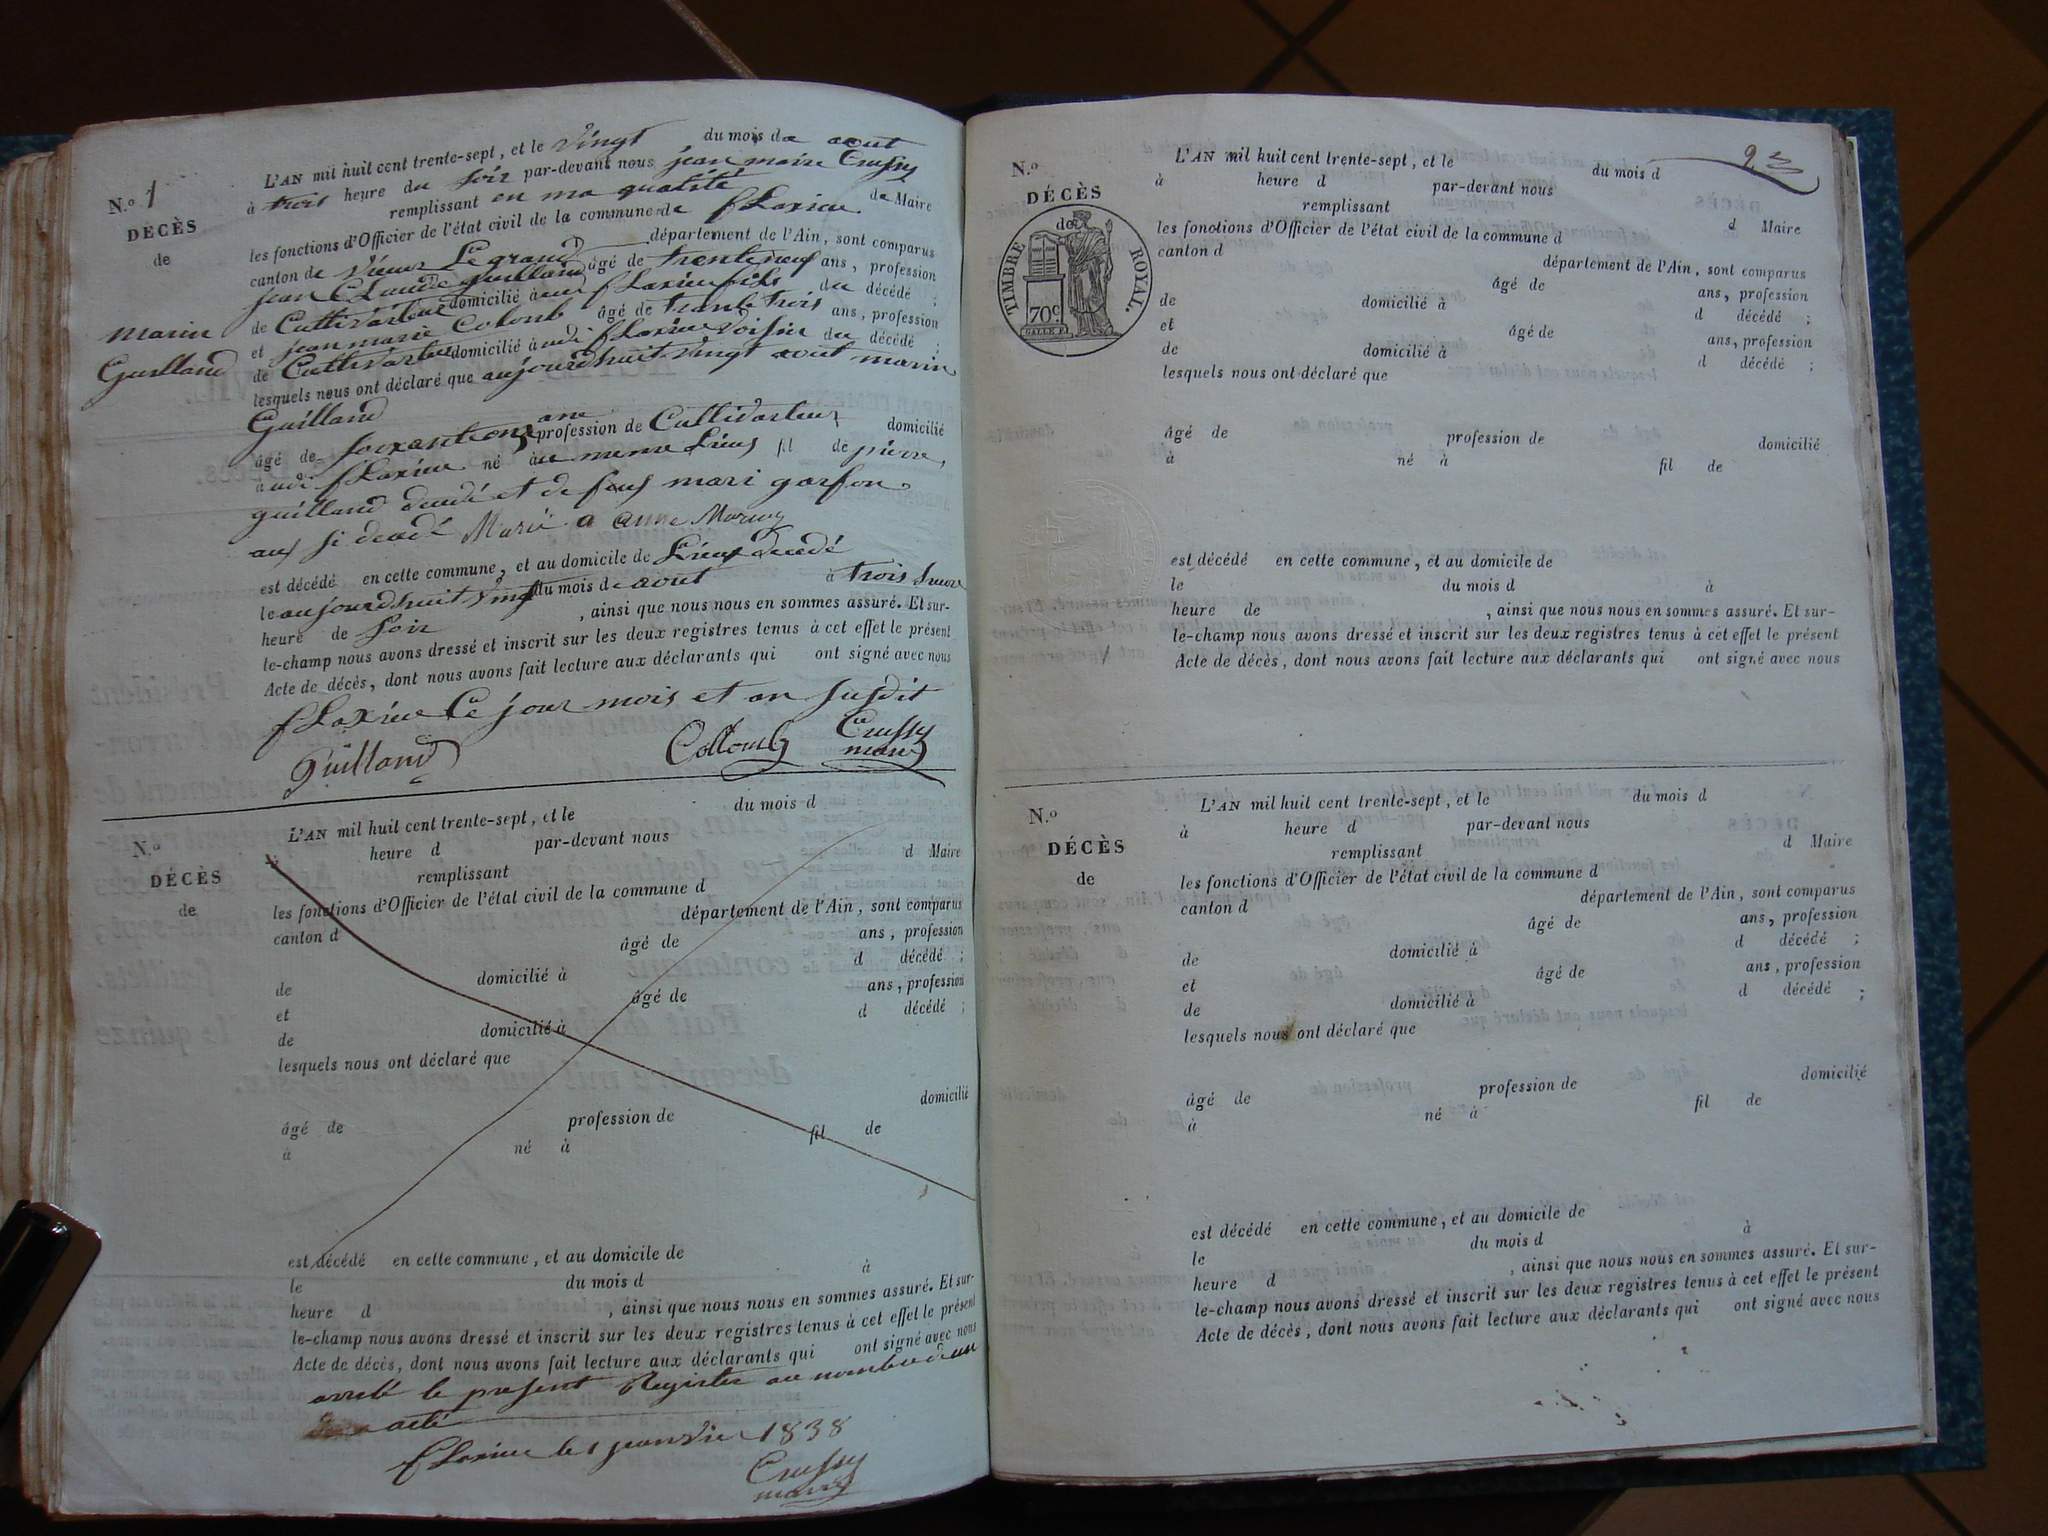 N.o 1
DÉCÈS
de
Marin
Guilland
L'AN mil huit cent trente-sept, et le vingt du mois de aout
à trois heure du soir par-devant nous jean marie Crussy
remplissant en ma qualité de Maire
les fonctions d'Officier de l'état civil de la commune de flaxieu
canton de vieux Le grand département de l'Ain, sont comparus
jean Claude guilland âgé de trente neuf ans, profession
de Cultivateur domicilié à flaxieu fils du décédé ;
et jean marie Colomb âgé de trente trois ans, profession
de Cultivateur domicilié à udi flaxieu voisin du décédé ;
lesquels nous ont déclaré que aujourdhuit vingt aout marin
Guilland
âgé de soixante onze ane profession de Cultivateur domicilié
à udi flaxieu né au meme Lieus fil de pierre
guilland decedé et de mari
aux si decedé Marié a anne
est décédé en cette commune, et au domicile de Lieux decedé
le aujourdhuit vingt du mois de aout à trois heure
heure de soir , ainsi que nous nous en sommes assuré. Et sur-
le-champ nous avons dressé et inscrit sur les deux registres tenus à cet effet le présent
Acte de décès, dont nous avons fait lecture aux déclarants qui ont signé avec nous
flaxieu Ce jour mois et an susdit
Guilland Collomb Crussy
maire
N.o
DÉCÈS
de
L'AN mil huit cent trente-sept, et le du mois d
heure d par-devant nous
remplissant d Maire
les fonctions d'Officier de l'état civil de la commune d
canton d département de l'Ain, sont comparus
âgé de ans, profession
de domicilié à d décédé ;
et âgé de ans, profession
de domicilié à d décédé ;
lesquels nous ont déclaré que
âgé de profession de domicilié
à né à fil de
est décédé en cette commune, et au domicile de
le du mois d à
heure d , ainsi que nous nous en sommes assuré. Et sur-
le-champ nous avons dressé et inscrit sur les deux registres tenus à cet effet le présent
Acte de décès, dont nous avons fait lecture aux déclarants qui ont signé avec nous
arreté le present Register au nombre d'un
acte
flaxieu le 1 janvie 1838
Crussy
maire
N.o
DÉCÈS
de
TIMBRE ROYAL.
70c
L'AN mil huit cent trente-sept, et le du mois d
à heure d par-devant nous
remplissant d Maire
les fonctions d'Officier de l'état civil de la commune d
canton d département de l'Ain, sont comparus
âgé de ans, profession
de domicilié à d décédé ;
et âgé de ans, profession
de domicilié à d décédé ;
lesquels nous ont déclaré que
âgé de profession de domicilié
à né à fil de
est décédé en cette commune, et au domicile de
le du mois d à
heure de , ainsi que nous nous en sommes assuré. Et sur-
le-champ nous avons dressé et inscrit sur les deux registres tenus à cet effet le présent
Acte de décès, dont nous avons fait lecture aux déclarants qui ont signé avec nous
N.o
DÉCÈS
de
L'AN mil huit cent trente-sept, et le du mois d
à heure d par-devant nous
remplissant d Maire
les fonctions d'Officier de l'état civil de la commune d
canton d département de l'Ain, sont comparus
âgé de ans, profession
de domicilié à d décédé ;
et âgé de ans, profession
de domicilié à d décédé ;
lesquels nous ont déclaré que
âgé de profession de domicilié
à né à fil de
est décédé en cette commune, et au domicile de
le du mois d à
heure d , ainsi que nous nous en sommes assuré. Et sur-
le-champ nous avons dressé et inscrit sur les deux registres tenus à cet effet le présent
Acte de décès, dont nous avons fait lecture aux déclarants qui ont signé avec nous